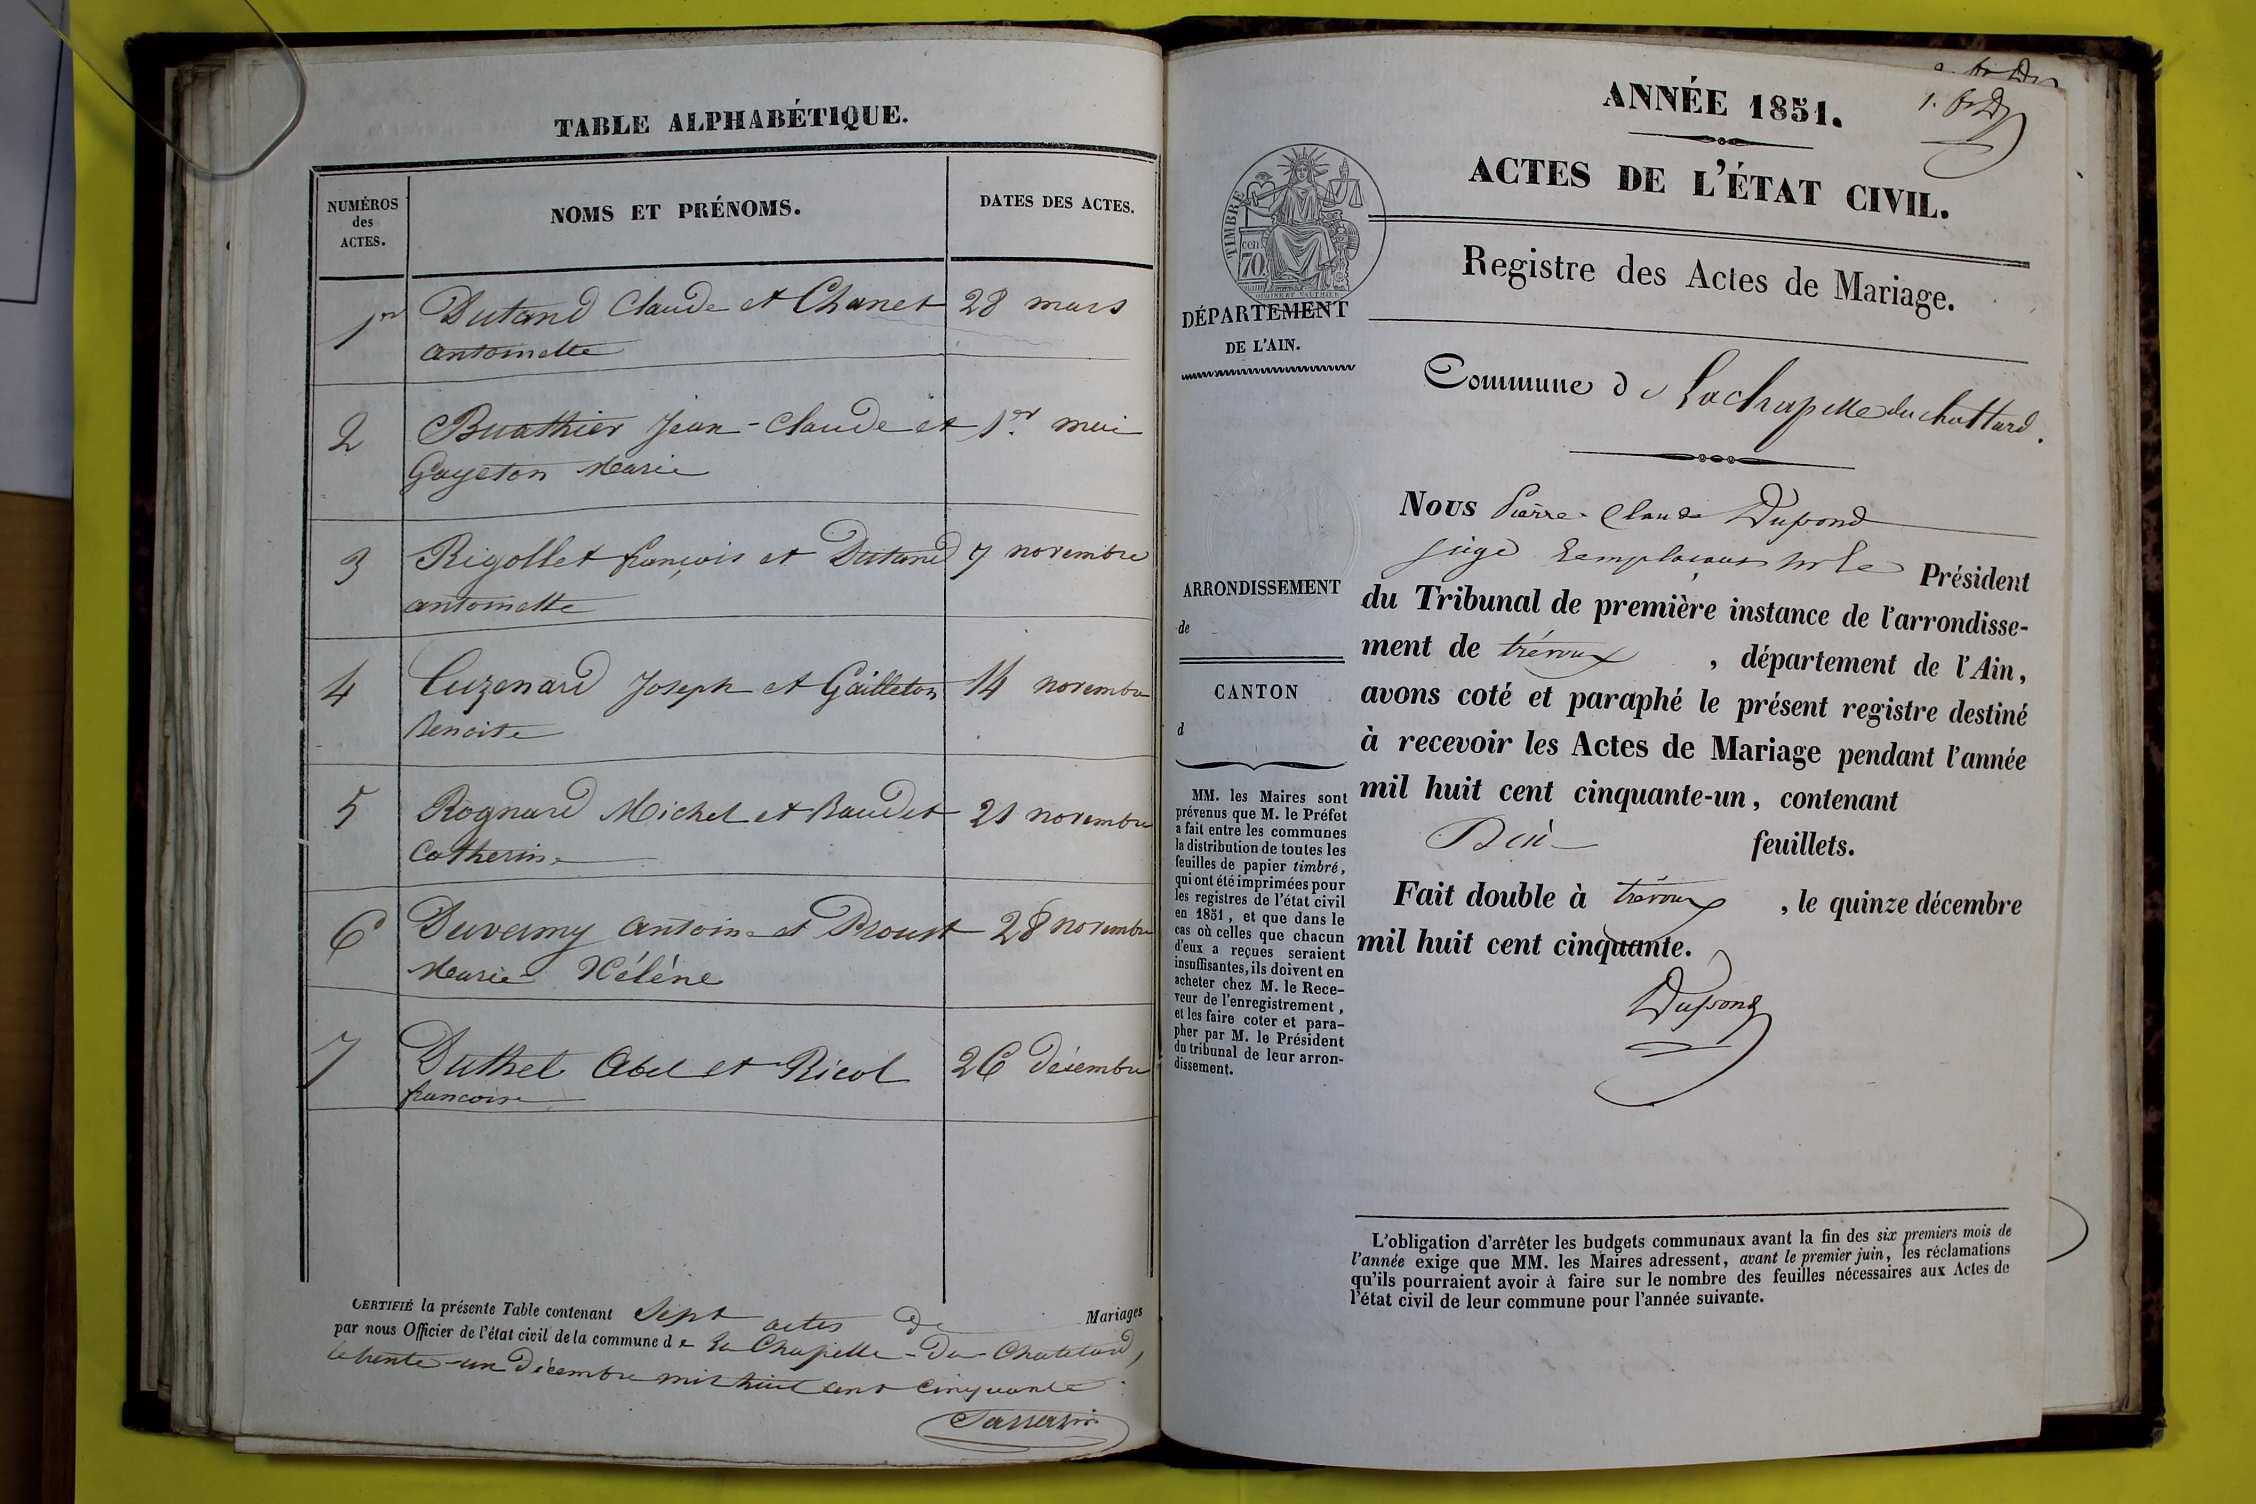 TABLE ALPHABÉTIQUE.
NUMÉROS
des
ACTES.
NOMS ET PRÉNOMS.
DATES DES ACTES.
1er Dutand Claude et Chanet 28 mars
antoinette
2 Buathier Jean-Claude et 1er mai
Gayeton Marie
3 Rigollet françois et Dutand 7 novembre
antoinette
4 Cuzenard Joseph et Gailleton 14 novembre
Benoite
5 Rognard Michel et Baudet 21 novembre
Catherine
6 antoine et Proust 28 novembre
Marie Hélène
7 Duthel Abel et Ricol 26 décembre
francoise
CERTIFIÉ la présente Table contenant Sept actes de Mariages
par nous Officier de l'état civil de la commune de La Chapelle-Du-Chatelard,
le trente-un Décembre mil huit cent cinquante.
ANNÉE 1851.
ACTES DE L'ÉTAT CIVIL.
Registre des Actes de Mariage.
TIMBRE
70 cen
DÉPARTEMENT
DE L'AIN.
Commune de Lachapelle du chattard.
ARRONDISSEMENT
de
CANTON
d
MM. les Maires sont
prévenus que M. le Préfet
a fait entre les communes
la distribution de toutes les
feuilles de papier timbré,
qui ont été imprimées pour
les registres de l'état civil
en 1851, et que dans le
cas où celles que chacun
d'eux a reçues seraient
insuffisantes, ils doivent en
acheter chez M. le Rece-
veur de l'enregistrement,
et les faire coter et para-
pher par M. le Président
du tribunal de leur arron-
dissement.
Nous Pierre-Claude Dupond
juge remplaçant Mr le Président
du Tribunal de première instance de l'arrondisse-
ment de trévoux, département de l'Ain,
avons coté et paraphé le présent registre destiné
à recevoir les Actes de Mariage pendant l'année
mil huit cent cinquante-un, contenant
feuillets.
Fait double à trévoux, le quinze décembre
mil huit cent cinquante.
Dupond
L'obligation d'arrêter les budgets communaux avant la fin des six premiers mois de
l'année exige que MM. les Maires adressent, avant le premier juin, les réclamations
qu'ils pourraient avoir à faire sur le nombre des feuilles nécessaires aux Actes de
l'état civil de leur commune pour l'année suivante.